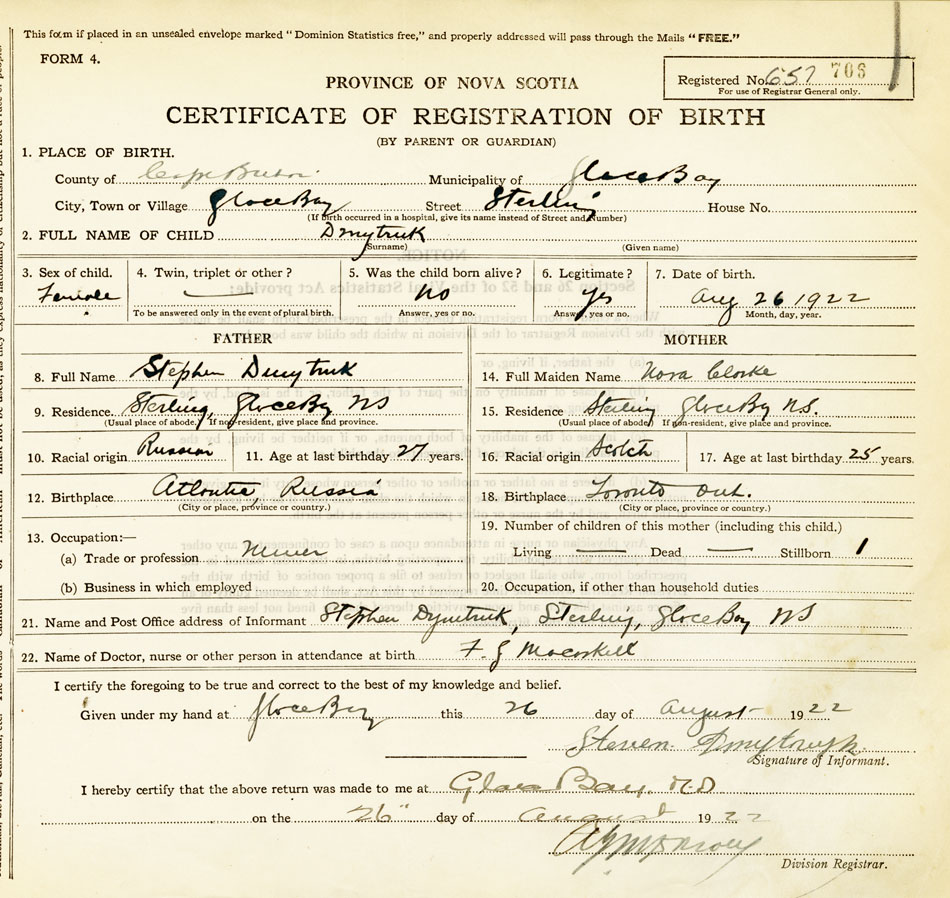 This form if placed in an unsealed envelope marked "Dominion Statistics free," and properly addressed will pass through the Mails "FREE."
FORM 4.
PROVINCE OF NOVA SCOTIA
Registered No. 657 706
For use of Registrar General only.
CERTIFICATE OF REGISTRATION OF BIRTH
(BY PARENT OR GUARDIAN)
1. PLACE OF BIRTH.
County of Cape Breton Municipality of Glace Bay
City, Town or Village Glace Bay Street Sterling House No.
(If birth occurred in a hospital, give its name instead of Street and Number)
2. FULL NAME OF CHILD Dmytruk
(Surname) (Given name)
3. Sex of child. 4. Twin, triplet or other? 5. Was the child born alive? 6. Legitimate? 7. Date of birth.
Female — no yes Aug 26 1922
To be answered only in the event of plural birth. Answer, yes or no. Answer, yes or no. Month, day, year.
FATHER MOTHER
8. Full Name Stephen Dmytruk 14. Full Maiden Name Nora Clarke
9. Residence Sterling, Glace Bay NS 15. Residence Sterling Glace Bay N.S.
(Usual place of abode. If non-resident, give place and province. (Usual place of abode) If non-resident, give place and province.
10. Racial origin Russian 11. Age at last birthday 27 years. 16. Racial origin Scotch 17. Age at last birthday 25 years.
12. Birthplace Russia 18. Birthplace Toronto Ont.
(City or place, province or country.) (City or place, province or country.)
13. Occupation:— 19. Number of children of this mother (including this child.)
(a) Trade or profession Miner Living — Dead — Stillborn 1
(b) Business in which employed 20. Occupation, if other than household duties
21. Name and Post Office address of Informant Stephen Dymtruk, Sterling, Glace Bay NS
22. Name of Doctor, nurse or other person in attendance at birth F. J Macaskill
I certify the foregoing to be true and correct to the best of my knowledge and belief.
Given under my hand at Glace Bay this 26 day of August 1922
Steven
Signature of Informant.
I hereby certify that the above return was made to me at Glace Bay
on the 26" day of August 1922
Division Registrar.